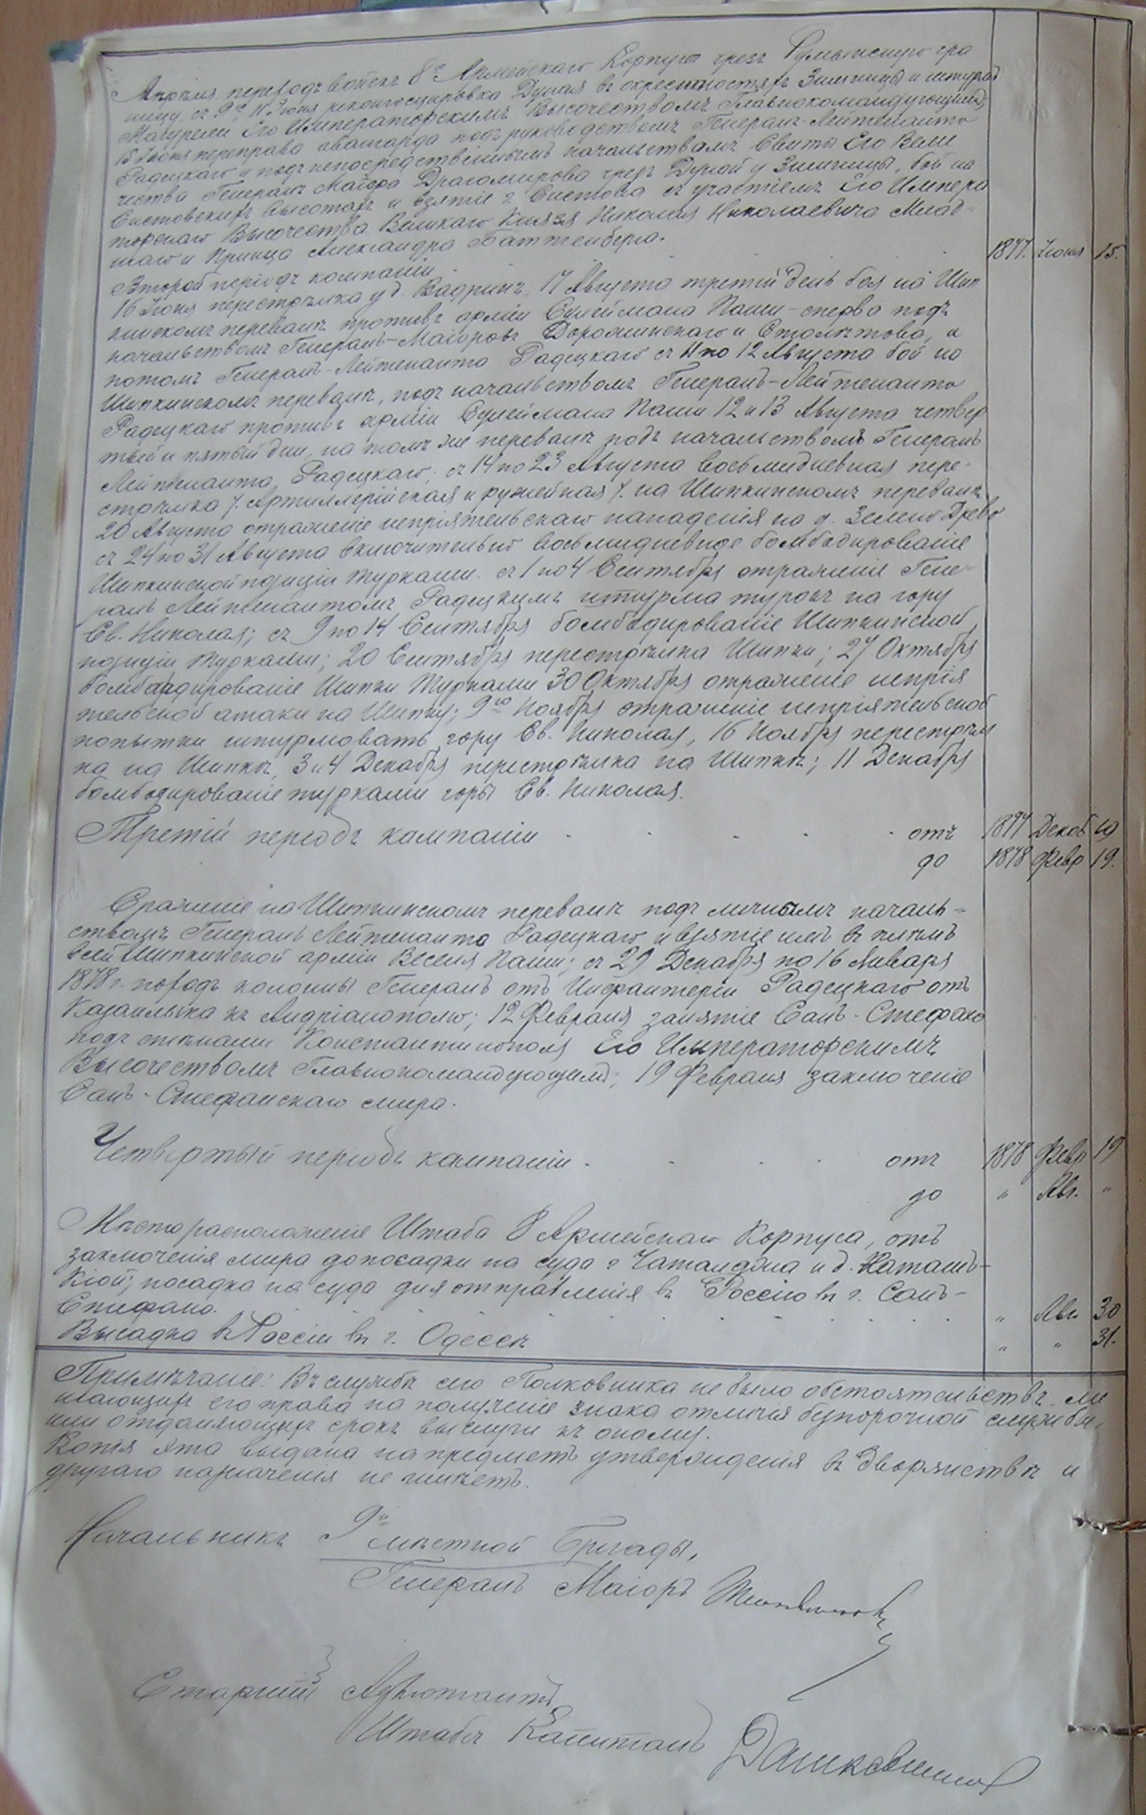 Апрѣля переходъ войскъ 8го Армейскаго Корпуса чрезъ Румынскую гра
ницу, съ 9го Іюня рекогносцировка Дуная въ окрестностяхъ Зимницы и
Его Императорскимъ Высочествомъ Главнокомандующимъ,
Іюня переправа авангарда подъ руководствомъ Генералъ-Лейтенанта
Радецкаго и подъ непосредственнымъ начальствомъ Свиты Его Вели
чества Генералъ Маіора Драгомирова чрезъ Дунай у Зимницы, бой на
Систовскихъ высотахъ и взятіе г. Систова съ участіемъ Его Импера
торскаго Высочества Великаго Князя Николая Николаевича Млад-
шаго и Принца Александра Баттенберга. 1877. Іюня 15.
Второй періодъ кампаніи
16 Іюня перестрѣлка у д. Вадринъ, Августа третій день боя на Шип
кинскомъ перевалѣ противъ арміи Сулеймана Паши-сперва подъ
начальствомъ Генералъ-Маіоровъ Дорожинскаго и Столѣтова, а
потомъ Генералъ-Лейтенанта Радецкаго съ 11 по 12 Августа бой на
Шипкинскомъ перевалѣ, подъ начальствомъ Генералъ-Лейтенанта
Радецкаго противъ арміи Сулеймана Паши 12 и 13 Августа четвер
тый и пятый дни, на томъ же перевалѣ подъ начальствомъ Генералъ
Лейтенанта Радецкаго; съ 14 по 23 Августа восьмидневная пере-
стрѣлка /. Артиллерійская и ружейная /. на Шипкинскомъ перевалѣ,
20 Августа отраженіе непріятельскаго нападенія на д. Зелено Древо
съ 24 по 31 Августа включительно восьмидневное бомбадированіе
Шипкинской позиціи турками. съ 1 по 4 Сентября отраженіе Гене-
ралъ Лейтенантомъ Радецкимъ штурма турокъ на гору
Св. Николая; съ 9 по 14 Сентября бомбадированіе Шипкинской
позиціи Турками; 20 Сентября перестрѣлка Шипки; 27 Октября
бомбадированіе Шипки Турками 30 Октября отраженіе непрія
тельской атаки на Шипку; 9го Ноября отраженіе непріятельской
попытки штурмовать гору Св. Николая, 16 Ноября перестрѣл
ка на Шипкѣ, 3 и 4 Декабря перестрѣлка на Шипкѣ; 11 Декабря
бомбадированіе турками горы Св. Николая.
Третій періодъ кампаніи отъ 1877 Декаб 19
до 1878 Февр 19.
Сраженіе на Шипкинскомъ перевалѣ подъ личнымъ началь-
ствомъ Генералъ Лейтенанта Радецкаго и взятіе имъ въ плѣнъ
всей Шипкинской арміи Весселя Паши; съ 29 Декабря по 16 Января
1878 г. походъ колонны Генералъ отъ Инфантеріи Радецкаго отъ
Казанлыка къ Андріанополю; 12 Февраля занятіе Санъ-Стефано
подъ стѣнами Константинополя Его Императорскимъ
Высочествомъ Главнокомандующимъ; 19 Февраля заключеніе
Санъ-Стефанскаго мира.
Четвертый періодъ кампаніи отъ 1878 Февр 19
до " Авг. "
Мѣсто расположеніе Штаба 8 Армейскаго Корпуса, отъ
заключенія мира до посадки на суда г. Чаталджа и д.
Кіой; посадка на суда для отправленія въ Россію въ г. Санъ-
Стефано. " Авг. 30
Высадка въ Россіи въ г. Одессѣ " " 31.
Примѣчаніе: Въ службѣ сего Полковника не было обстоятельствъ, ли
шающихъ его права на полученіе знака отличія безпорочной службы,
или отдаляющихъ срокъ выслуги къ оному.
Копія эта выдана на предметъ утвержденія въ дворянствѣ и
другаго назначенія не имѣетъ.
Начальникъ 9й мѣстной Бригады,
Генералъ Маіоръ
Старшій Адъютантъ
Штабсъ Капитанъ